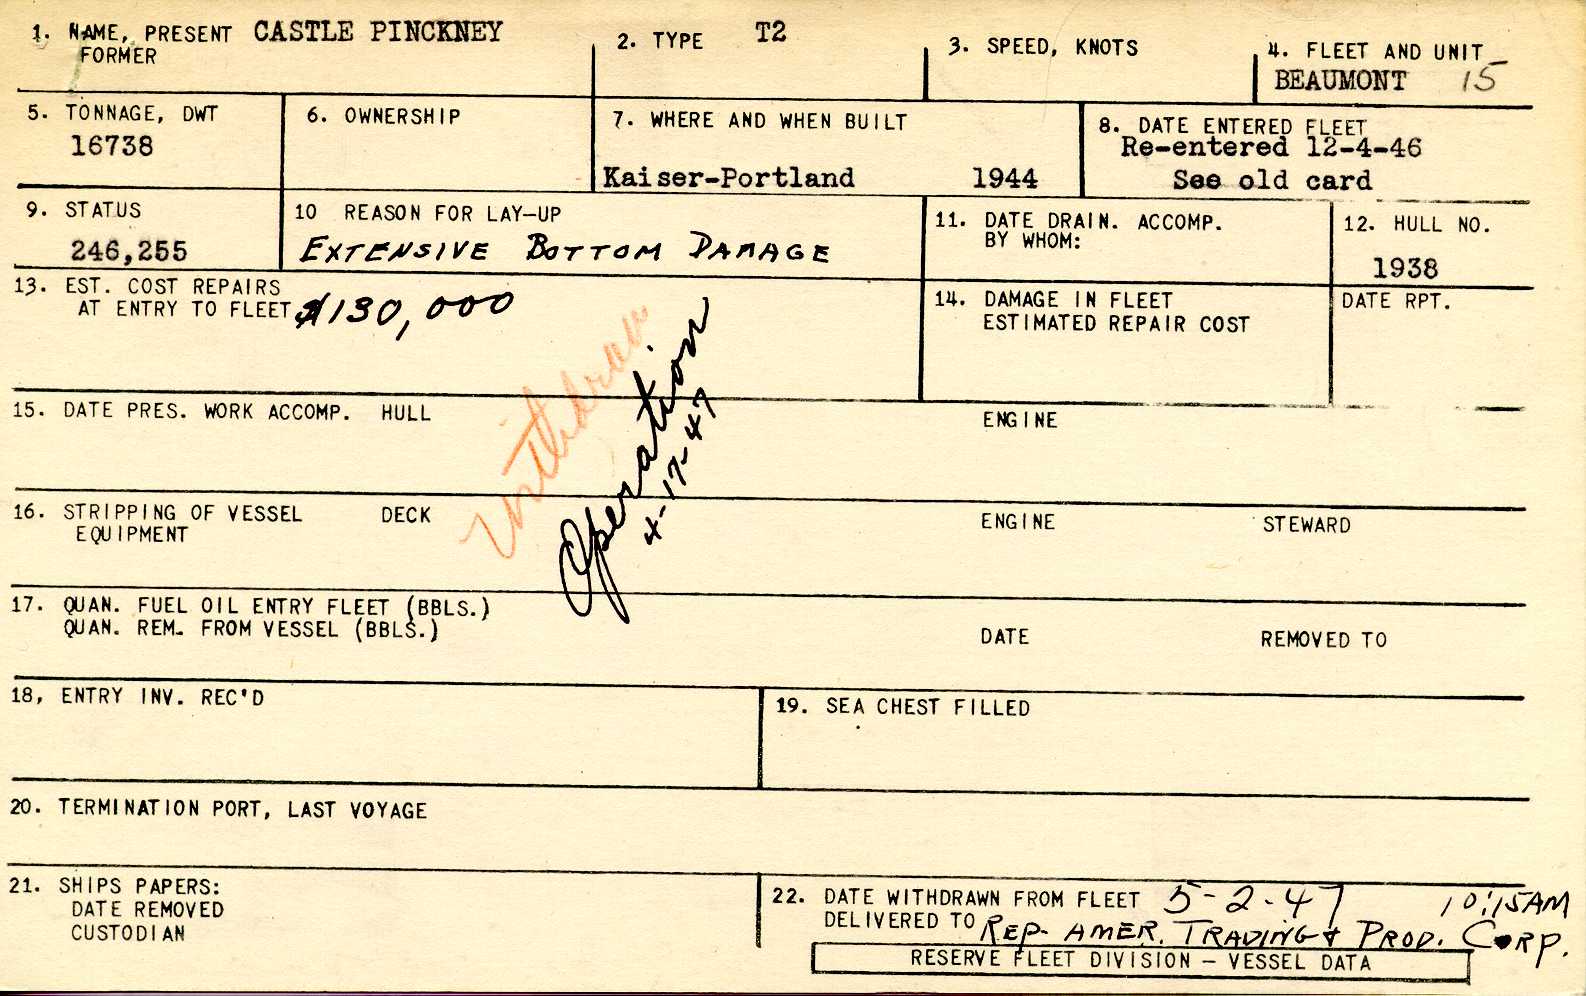 1. NAME, PRESENT CASTLE PINCKNEY
FORMER
2. TYPE T2
3. SPEED, KNOTS
4. FLEET AND UNIT
BEAUMONT 15
5. TONNAGE, DWT
16738
6. OWNERSHIP
7. WHERE AND WHEN BUILT
Kaiser-Portland 1944
8. DATE ENTERED FLEET
Re-entered 12-4-46
See old card
9. STATUS
246,255
10 REASON FOR LAY-UP
EXTENSIVE BOTTOM DAMAGE
11. DATE DRAIN. ACCOMP.
BY WHOM:
12. HULL NO.
1938
13. EST. COST REPAIRS
AT ENTRY TO FLEET $130,000
14. DAMAGE IN FLEET
ESTIMATED REPAIR COST
DATE RPT.
Withdraw
Operation
4-17-47
15. DATE PRES. WORK ACCOMP. HULL ENGINE
16. STRIPPING OF VESSEL DECK ENGINE STEWARD
EQUIPMENT
17. QUAN. FUEL OIL ENTRY FLEET (BBLS.)
QUAN. REM. FROM VESSEL (BBLS.) DATE REMOVED TO
18, ENTRY INV. REC'D
19. SEA CHEST FILLED
20. TERMINATION PORT, LAST VOYAGE
21. SHIPS PAPERS:
DATE REMOVED
CUSTODIAN
22. DATE WITHDRAWN FROM FLEET 5-2-47 10:15AM
DELIVERED TO REP- AMER. TRADING & PROD. CORP.
RESERVE FLEET DIVISION - VESSEL DATA